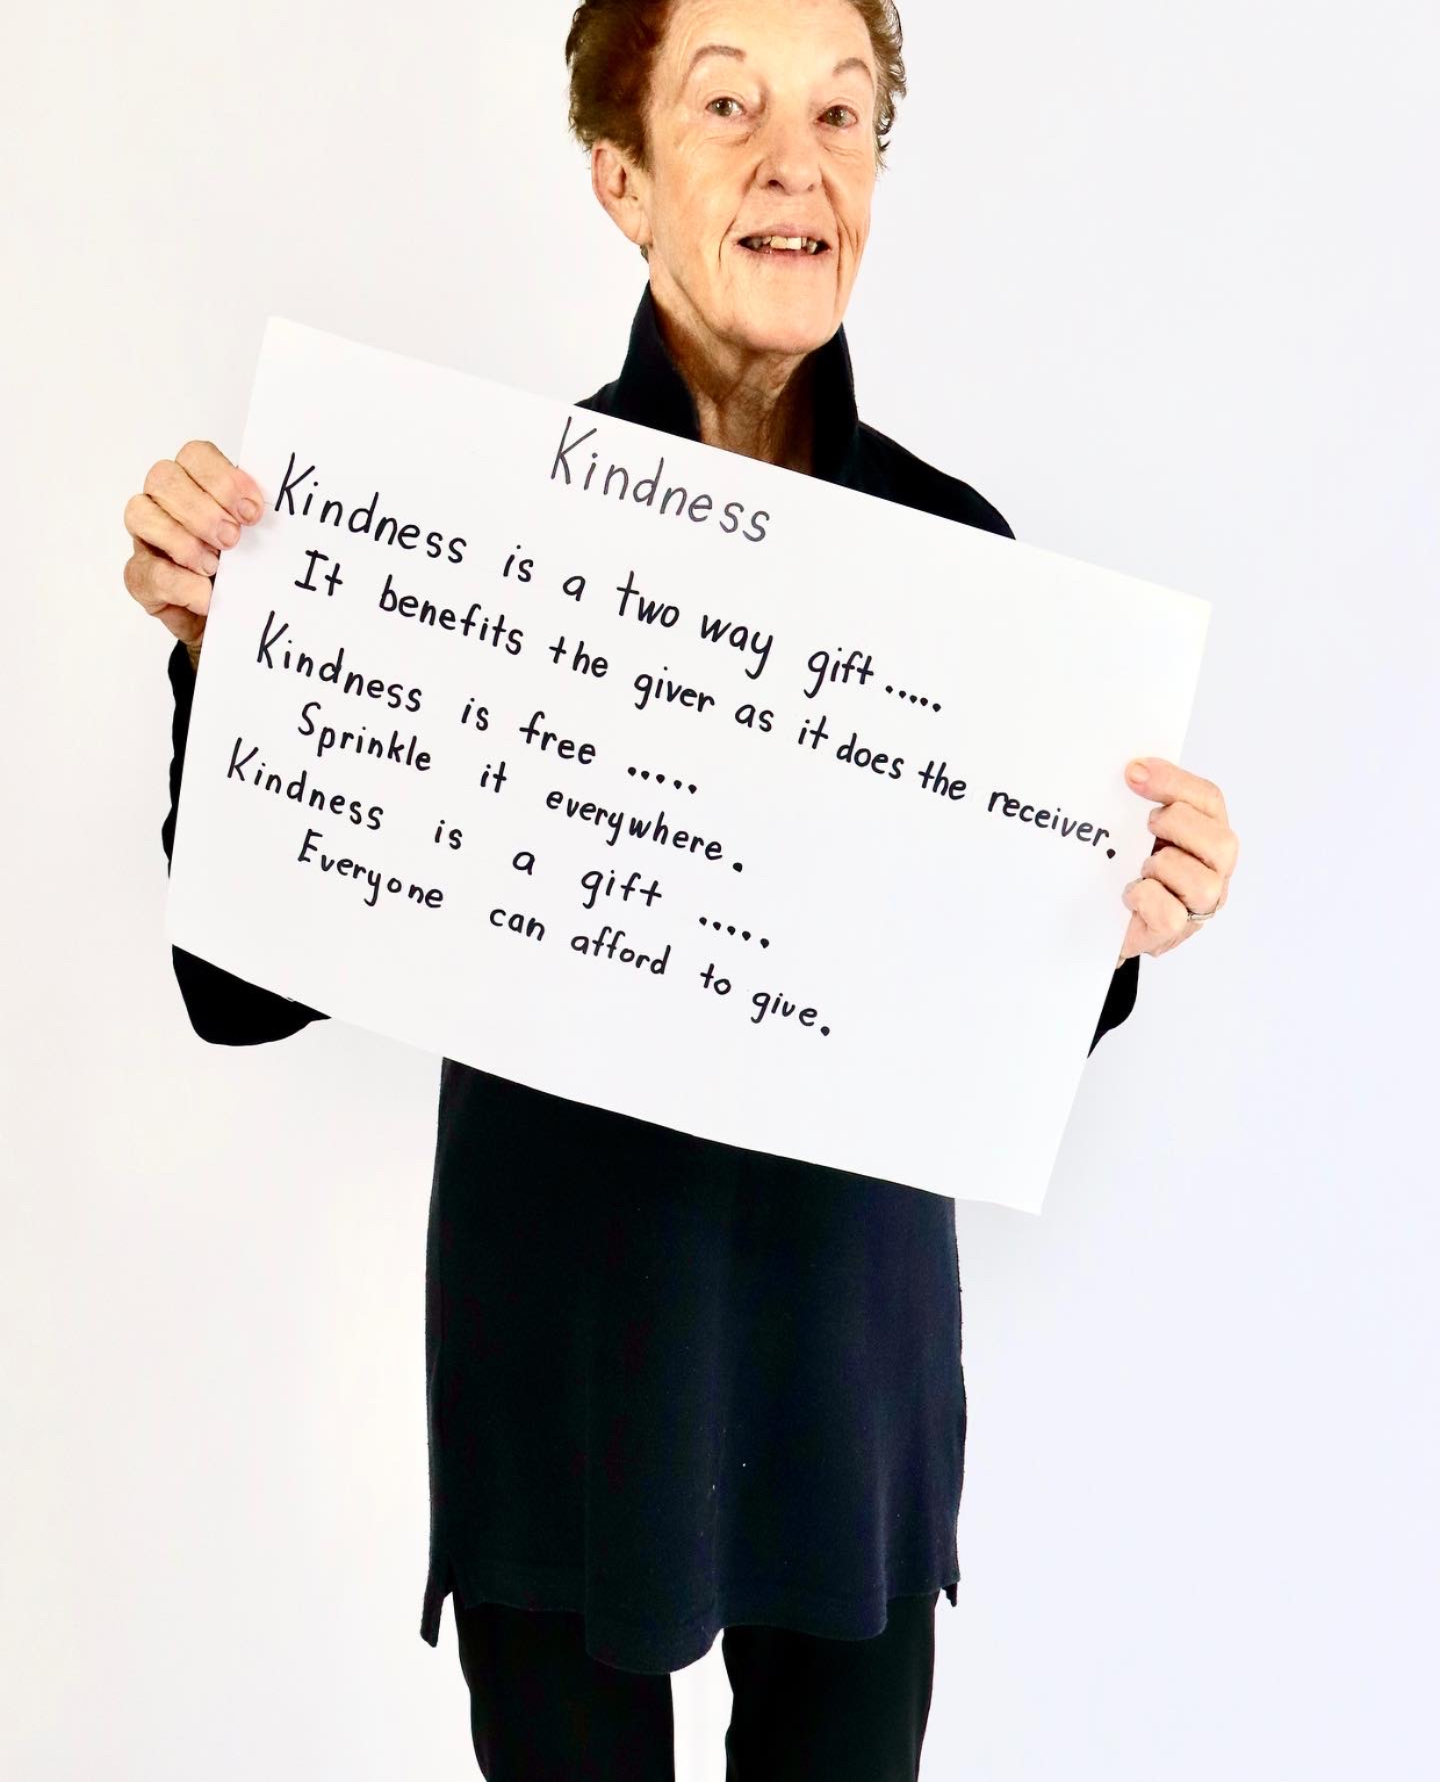 Kindness
Kindness is a two way gift.....
It benefits the giver as it does the receiver.
Kindness is free .....
Sprinkle it everywhere.
Kindness is a gift .....
Everyone can afford to give.